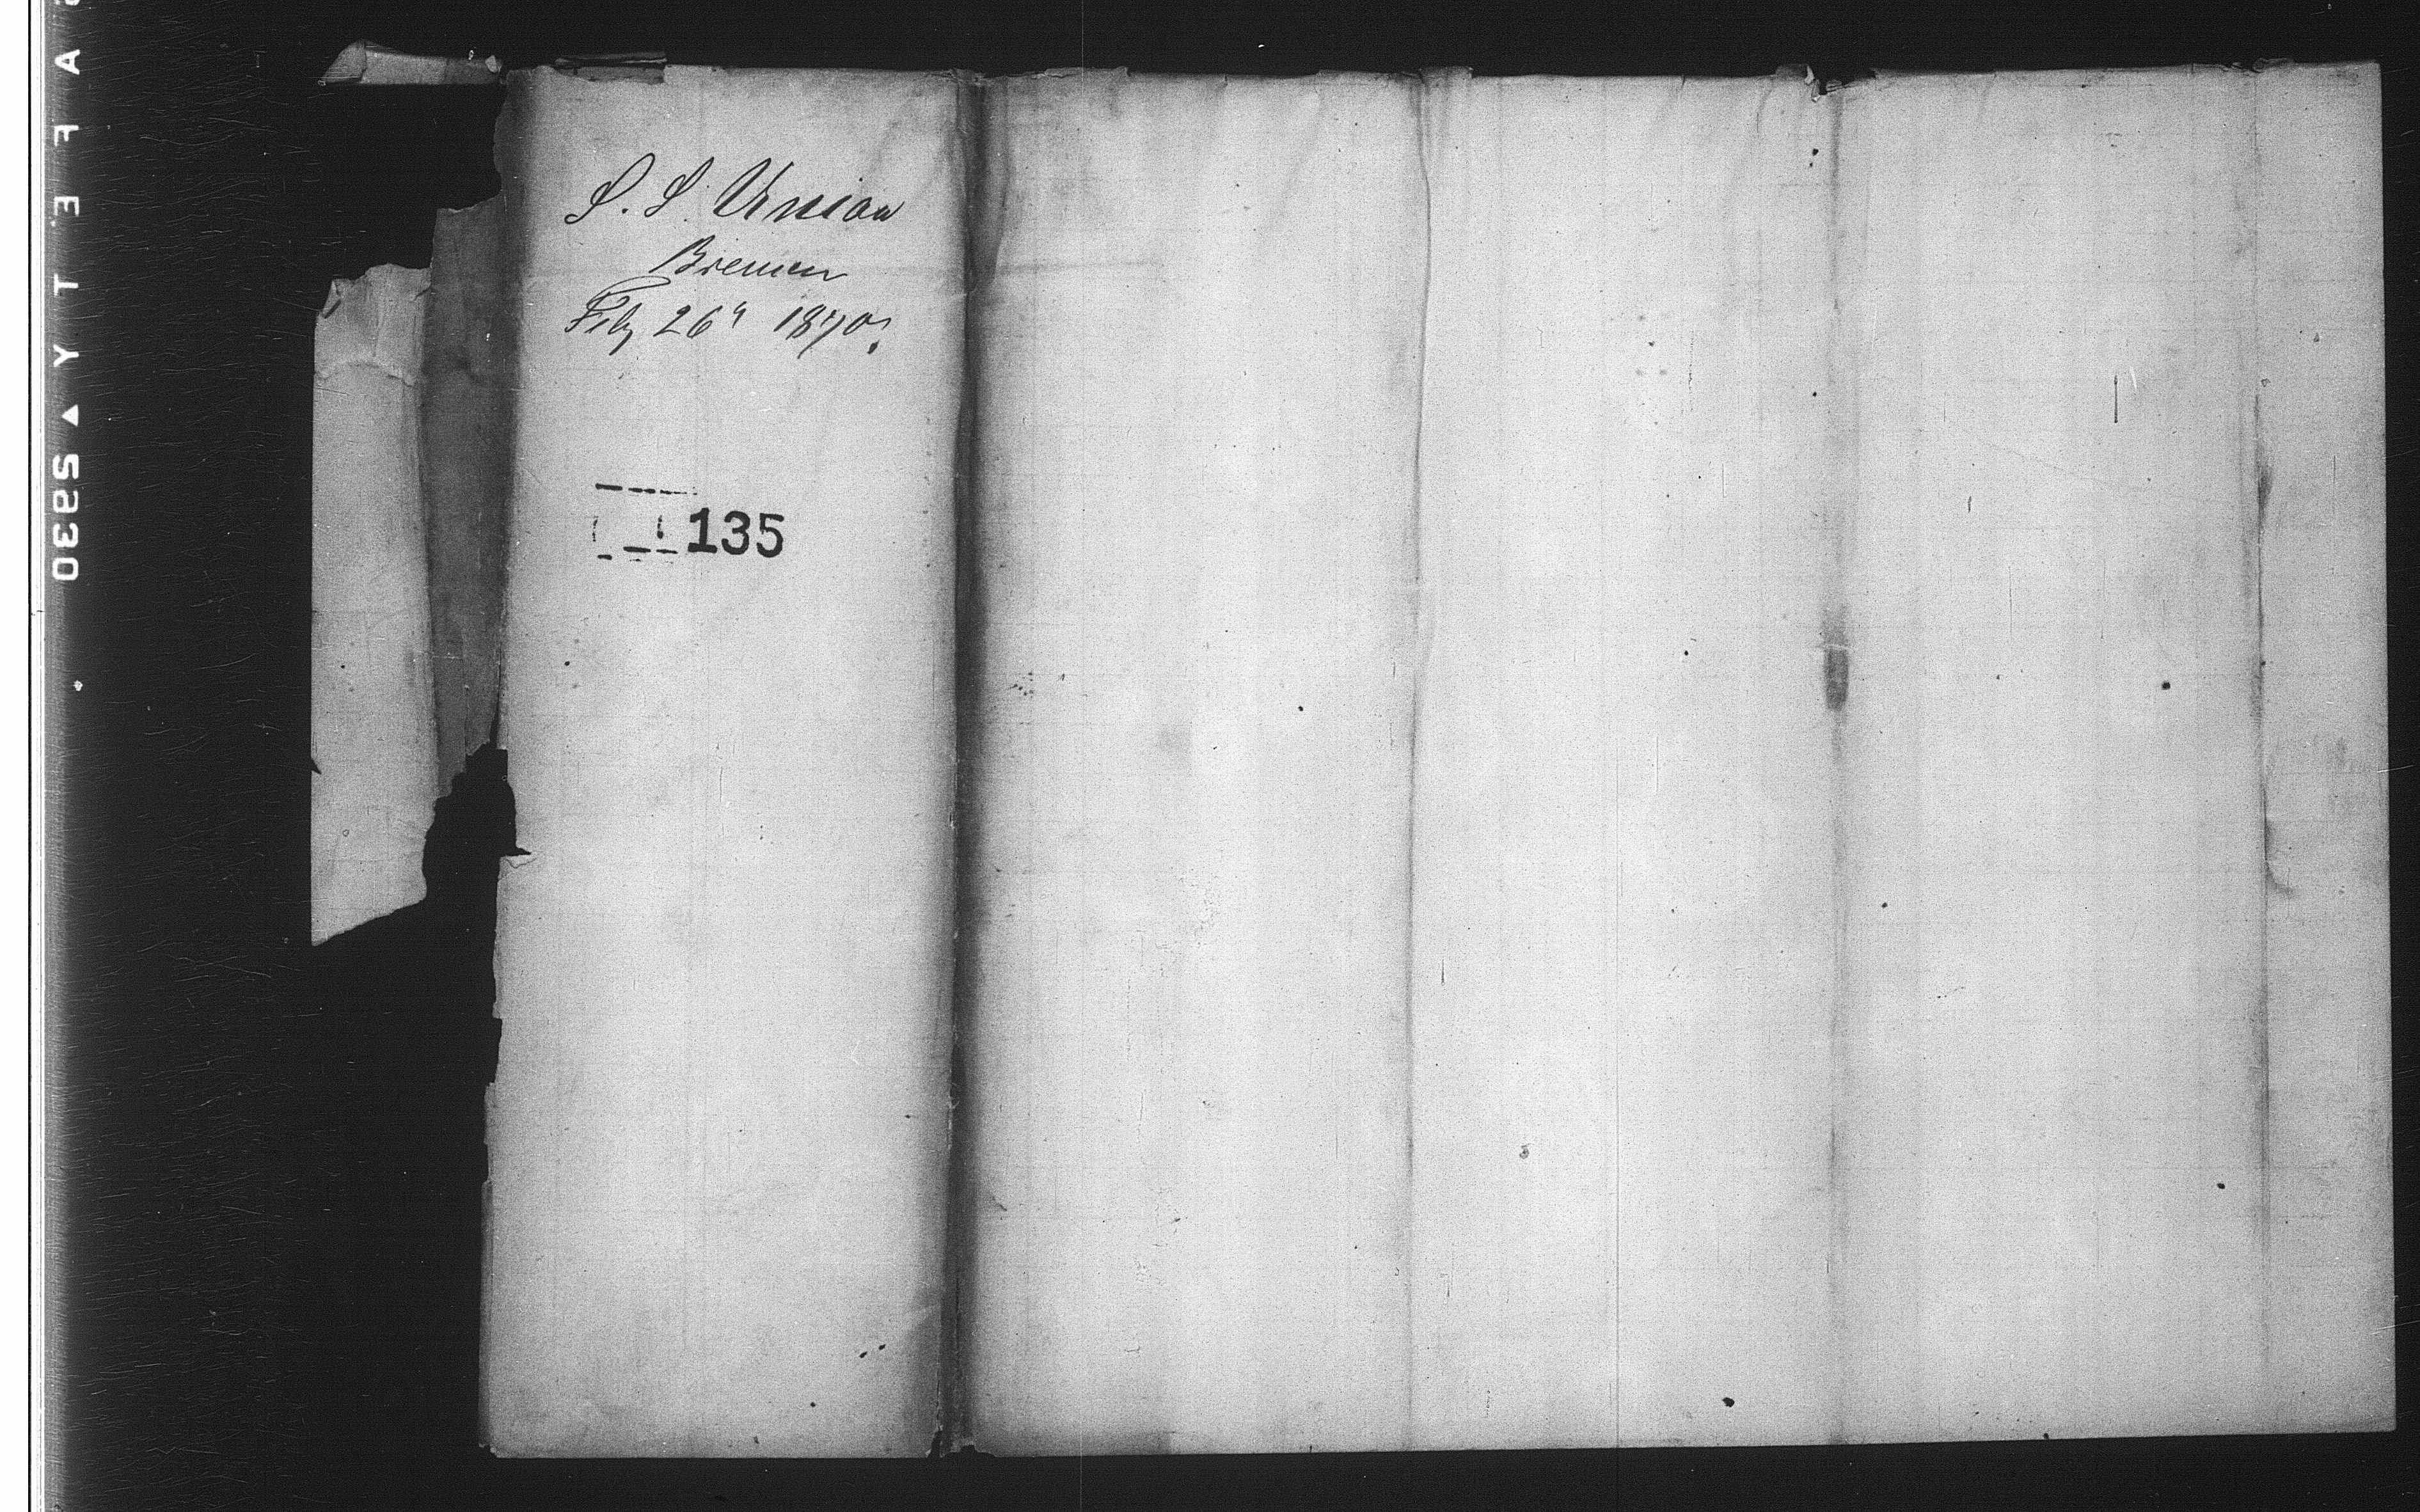 S. S. Union
Bremen
Feby 26" 1870.
135
SAFETY ▲ 5930